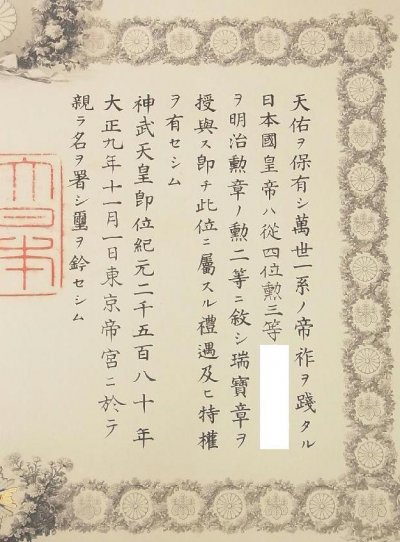 天佑ヲ保有シ萬世一系ノ帝祚ヲ踐タル
日本國皇帝ハ從四位勲三等
ヲ明治勲章ノ勲二等ニ敘シ瑞寶章ヲ
授與ス卽チ此位ニ屬スル禮遇及ヒ特權
ヲ有セシム
神武天皇卽位紀元二千五百八十年
大正九年十一月一日東京帝宮ニ於テ
親ラ名ヲ署シ璽ヲ鈐セシム